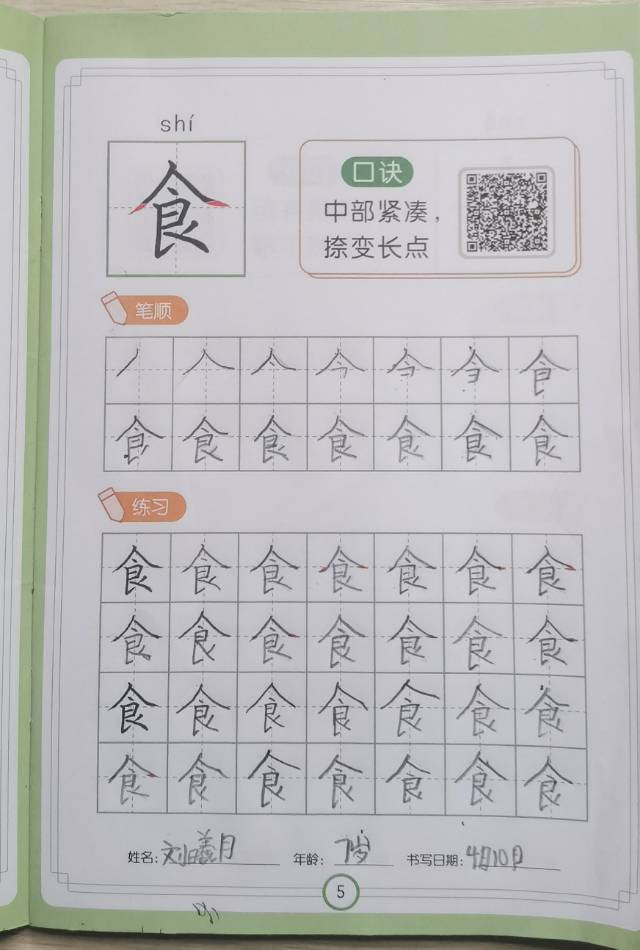 shí
食
口诀
中部紧凑，
捺变长点
笔顺
丿 人 𠆢 今 今 今 食
食 食 食 食 食 食 食
练习
食 食 食 食 食 食 食
食 食 食 食 食 食 食
食 食 食 食 食 食 食
食 食 食 食 食 食 食
姓名：刘曦月 年龄：7岁 书写日期：4月10日
5